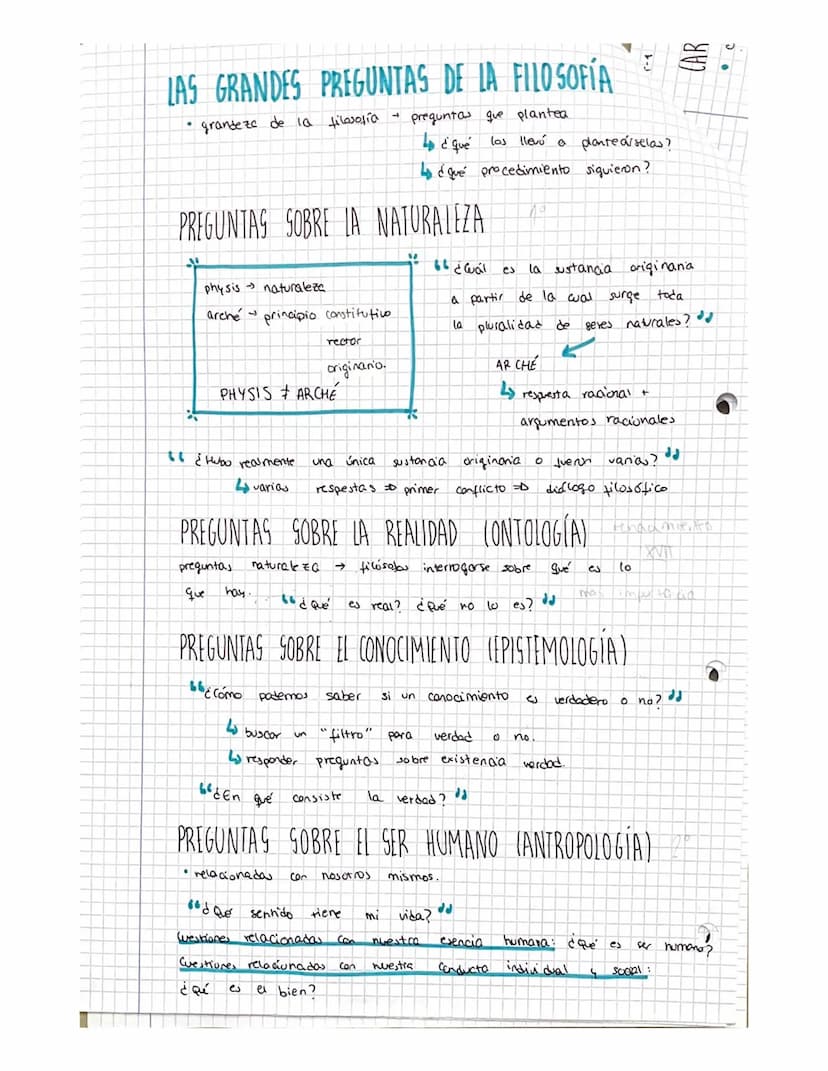 CAR
LAS GRANDES PREGUNTAS DE LA FILOSOFÍA
• grandeza de la filosofía → preguntas que plantea
↳ ¿qué los llevó a planteárselas?
↳ ¿qué procedimiento siguieron?
PREGUNTAS SOBRE LA NATURALEZA 1º
physis → naturaleza
arché → principio constitutivo
rector
originario.
PHYSIS ≠ ARCHÉ
“¿Cuál es la sustancia originaria
a partir de la cual surge toda
la pluralidad de seres naturales?”
ARCHÉ
↳ respuesta racional +
argumentos racionales
“¿Hubo realmente una única sustancia originaria o fueron varias?”
↳ varias respuestas ⇒ primer conflicto ⇒ diálogo filosófico
PREGUNTAS SOBRE LA REALIDAD (ONTOLOGÍA) renacimiento
XVII
preguntas naturaleza → filósofos interrogarse sobre qué es lo
que hay. más importancia
“¿Qué es real? ¿Qué no lo es?”
PREGUNTAS SOBRE EL CONOCIMIENTO (EPISTEMOLOGÍA)
“¿Cómo podemos saber si un conocimiento es verdadero o no?”
↳ buscar un "filtro" para verdad o no.
↳ responder preguntas sobre existencia verdad.
“¿En qué consiste la verdad?”
PREGUNTAS SOBRE EL SER HUMANO (ANTROPOLOGÍA) 2º
• relacionadas con nosotros mismos.
“¿Qué sentido tiene mi vida?”
Cuestiones relacionadas con nuestra esencia humana: ¿qué es ser humano?
Cuestiones relacionadas con nuestra conducta individual y social:
¿qué es el bien?